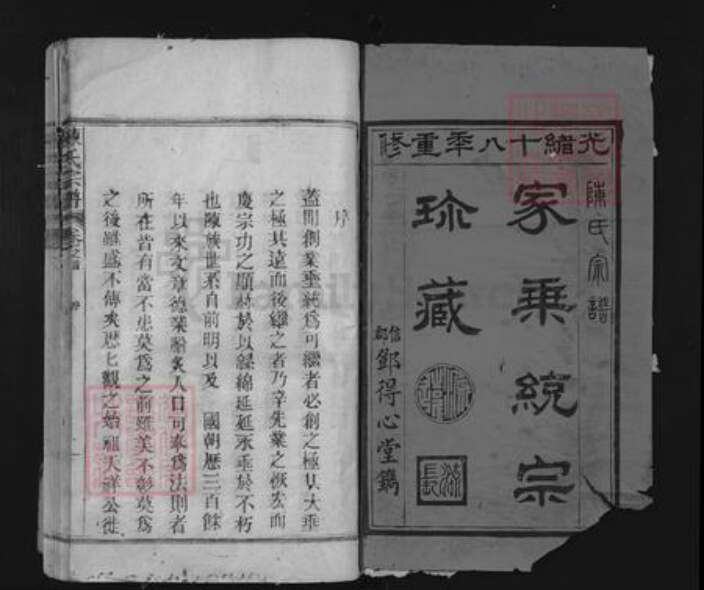 光緒十八年重修
陳氏宗譜
家乘統宗
珍藏
信都鄧得心堂鐫
序
蓋聞創業垂統為可繼者必創之極其大垂
之極其遠而後繼之者乃幸先業之恢宏而
慶宗功之顯赫於以綿綿延延永垂於不朽
也陳族世系自前明以及 國朝歷三百餘
年以來文章德業膾炙人口可奉為法則者
所在皆有當不患莫為之前雖美不彰莫為
之後雖盛不傳矣歷七觀之始祖天祥公徙
氏宗譜